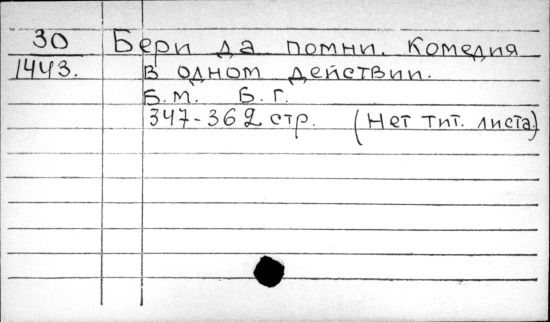 30 Бери да помни. Комедия
1443. в одном действии.
Б.м. Б.г.
347-362 стр. (Нет тит. листа)